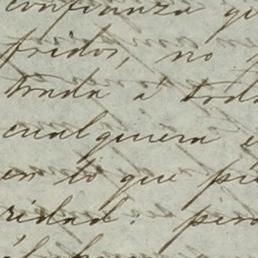 confianza qu
fridos, no
tonda á tod
cualquiera
en lo que pu
ridad. pero